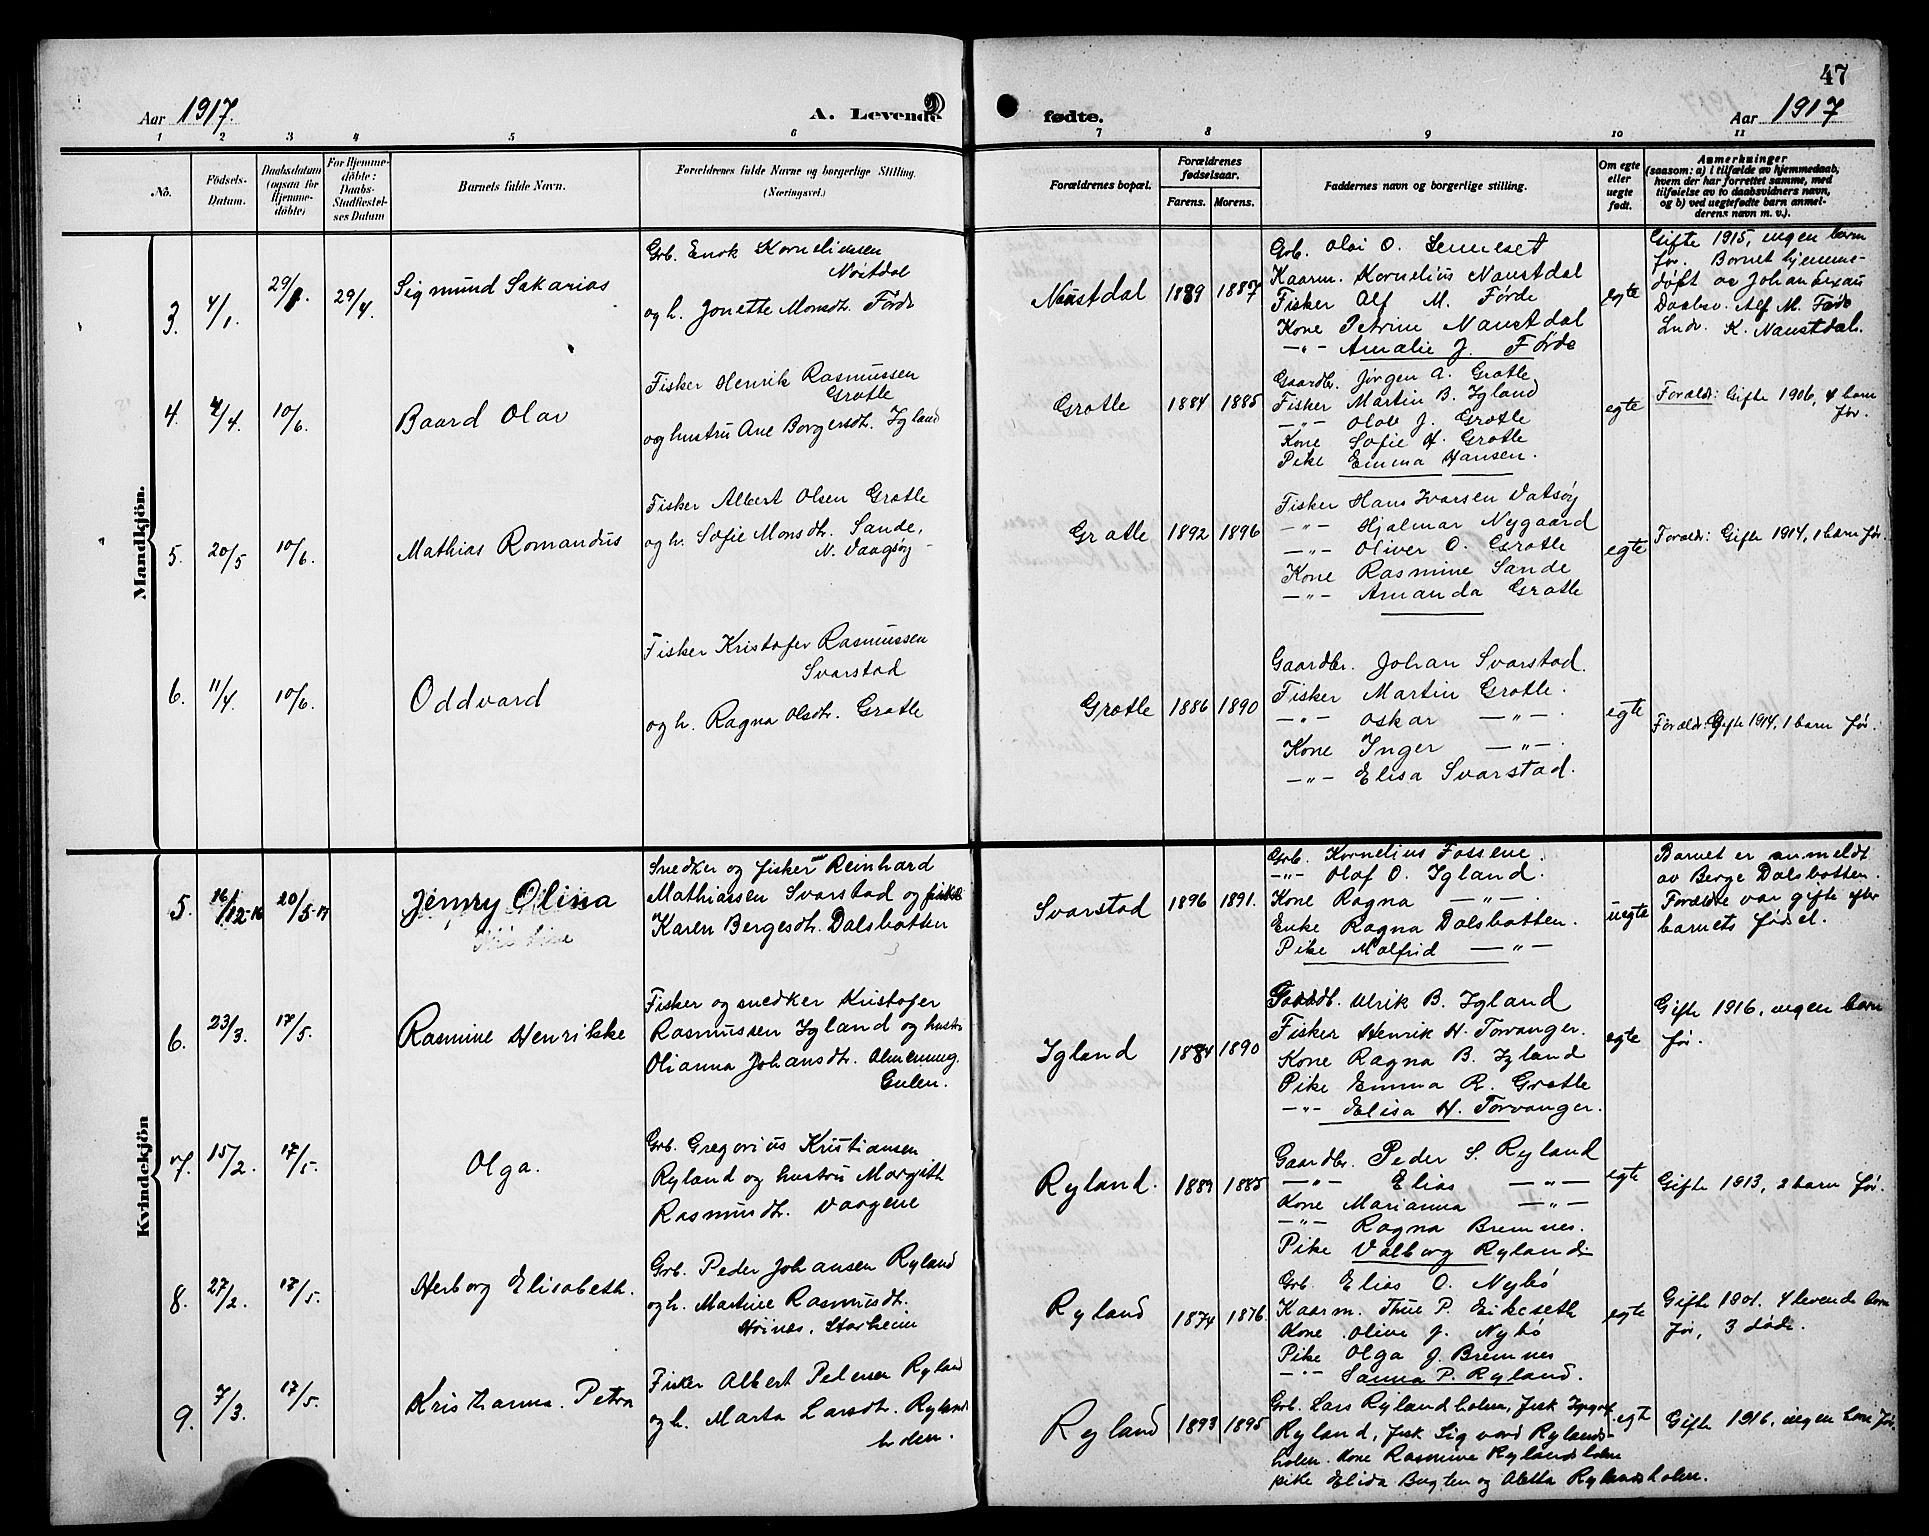 47
Aar 1917.
A. Levende
fødte.
Aar 1917
1 2 3 4 5 6 7 8 9 10 11
No.
Fødsels-
Datum.
Daabsdatum
(ogsaa for
Hjemme-
døbte)
For Hjemme-
døbte:
Daabs-
Stadfæstel-
ses Datum
Barnets fulde Navn.
Forældrenes fulde Navne og borgerlige Stilling.
(Næringsvei.)
Forældrenes bopæl.
Forældrenes
fødselsaar.
Farens. Morens.
Faddernes navn og borgerlige stilling.
Om egte
eller
uegte
født.
Anmerkninger
(saasom: a) i tilfælde av hjemmedaab,
hvem der har forrettet samme, med
tilføielse av to daabsvidners navn,
og b) ved uegtefødte barn anmel-
derens navn m. v.).
Mandkjön.
3. 4/1. 29/1. 29/4. Sigmund Sakarias
Grb. Enok Korneliussen
Nøstdal
og h. Jonette Monsdt. Førde
Naustdal 1889 1887
Grb. Olai O. Senneset
Kaarm. Kornelius Naustdal
Fisker Alf M. Førde
Kone Petrine Naustdal
-"- Amalie J. Førde
egte
Gifte 1915, ingen barn
før. Barnet hjemme-
døpt av Johan
Daabsv. Alf M. Førde
K. Naustdal.
4. 4/4. 10/6. Baard Olav
Fisker Henrik Rasmussen
Grotle
og hustru Ane Borgersdt. Igland
Grotle 1884 1885
Gaardbr. Jørgen A. Grotle
Fisker Martin B. Igland
-"- Olav J. Grotle
Kone Sofie H. Grotle
Pike Emma Hansen.
egte
Forældr: Gifte 1906, 4 barn
før.
5. 20/5 10/6. Mathias Romandus
Fisker Albert Olsen Grotle
og h. Sofie Monsdt. Sande,
N. Vaagsøy -
Grotle 1892 1896
Fisker Hans Ivarsen Vatsøy
-"- Hjalmar Nygaard
-"- Oliver O. Grotle
Kone Rasmine Sande
-"- Amanda Grotle
egte
Forældr: Gifte 1914, 1 barn før.
6. 11/4. 10/6. Oddvard
Fisker Kristofer Rasmussen
Svarstad
og h. Ragna Olsdt. Grotle
Grotle 1886 1890
Gaardbr. Johan Svarstad.
Fisker Martin Grotle.
-"- Oskar -"-.
Kone Inger -"-.
-"- Elisa Svarstad.
egte
Forældr: Gifte 1914, 1 barn før.
Kvindekjön
5. 16/12-16 20/5-17 Jenny Olina
Snedker og fisker Reinhard
Mathiassen Svarstad og
Karen Bergesdt. Dalsbotten
Svarstad 1896 1891.
Grb. Kornelius Fossene.
-"- Olaf O. Igland.
Kone Ragna -"-.
Enke Ragna Dalsbotten.
Pike Malfrid -"-
uegte
Barnet er anmeldt
av Berge Dalsbotten.
Forældre var gifte efter
barnets fødsel.
6. 23/3. 17/5. Rasmine Henrikke
Fisker og snedker Kristofer
Rasmussen Igland og hustr.
Olianna Johansdt. Almenning
Gulen.
Igland 1884 1890
Gaardb. Ulrik B. Igland
Fisker Henrik H. Torvanger.
Kone Ragna B. Igland
Pike Emma R. Grotle
-"- Elisa H. Torvanger.
egte
Gifte 1916, ingen barn
før.
7. 15/2. 17/5. Olga.
Grb. Gregorius Kristiansen
Ryland og hustru Margith
Rasmusdt. Vaagene
Ryland. 1889 1885
Gaardbr. Peder S. Ryland
-"- Elias -"-
Kone Marianna -"-
-"- Ragna Bremnes.
Pike Valborg Ryland
egte
Gifte 1913, 2 barn før.
8. 27/2. 17/5. Herborg Elisabeth.
Grb. Peder Johansen Ryland
og h. Martine Rasmusdt.
Høines, Storheim
Ryland 1874 1876.
Grb. Elias O. Nybø
Kaarm. Thue P. Eikeseth
Kone Olive J. Nybø
Pike Olga J. Bremnes
-"- Sanna P. Ryland.
egte
Gifte 1901. 4 levende barn
før, 3 døde.
9. 7/3. 17/5. Kristianna Petra
Fisker Albert Pedersen Ryland
og h. Marta Larsdt. Rylands
holen.
Ryland 1893 1895
Grb. Lars Rylandholen, Fisk
Ryland, Fisk Sigvard Rylands-
holen. Kone Rasmine Rylandsholen
pike Elida Bugten og Aletta Rylandsholen.
egte
Gifte 1916, ingen barn før.